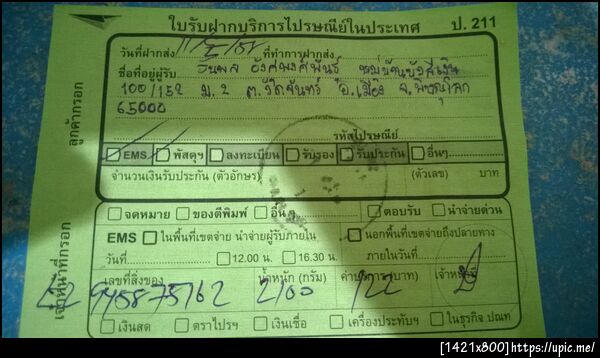 ใบรับฝากบริการไปรษณีย์ในประเทศ ป. 211
วันที่ฝากส่ง ที่ทำการฝากส่ง
ชื่อที่อยู่ผู้รับ
100/152 ม.2 ต.วัดจันทร์ อ.เมือง จ.พิษณุโลก
65000
รหัสไปรษณีย์
EMS พัสดุฯ ลงทะเบียน รับรอง รับประกัน อื่นๆ
จำนวนเงินรับประกัน (ตัวอักษร) (ตัวเลข) บาท
ลูกค้ากรอก
จดหมาย ของตีพิมพ์ อื่น ๆ ตอบรับ นำจ่ายด่วน
EMS ในพื้นที่เขตจ่าย นำจ่ายผู้รับภายใน นอกพื้นที่เขตจ่ายถึงปลายทาง
วันที่ 12.00 น. 16.30 น. ภายในวันที่
เลขที่สิ่งของ น้ำหนัก (กรัม) ค่าบริการ(บาท) เจ้าหน้าที่
122
เงินสด ตราไปรฯ เงินเชื่อ เครื่องประทับฯ ในธุรกิจ ปณท
เจ้าหน้าที่กรอก
[1421x800]https://upic.me/